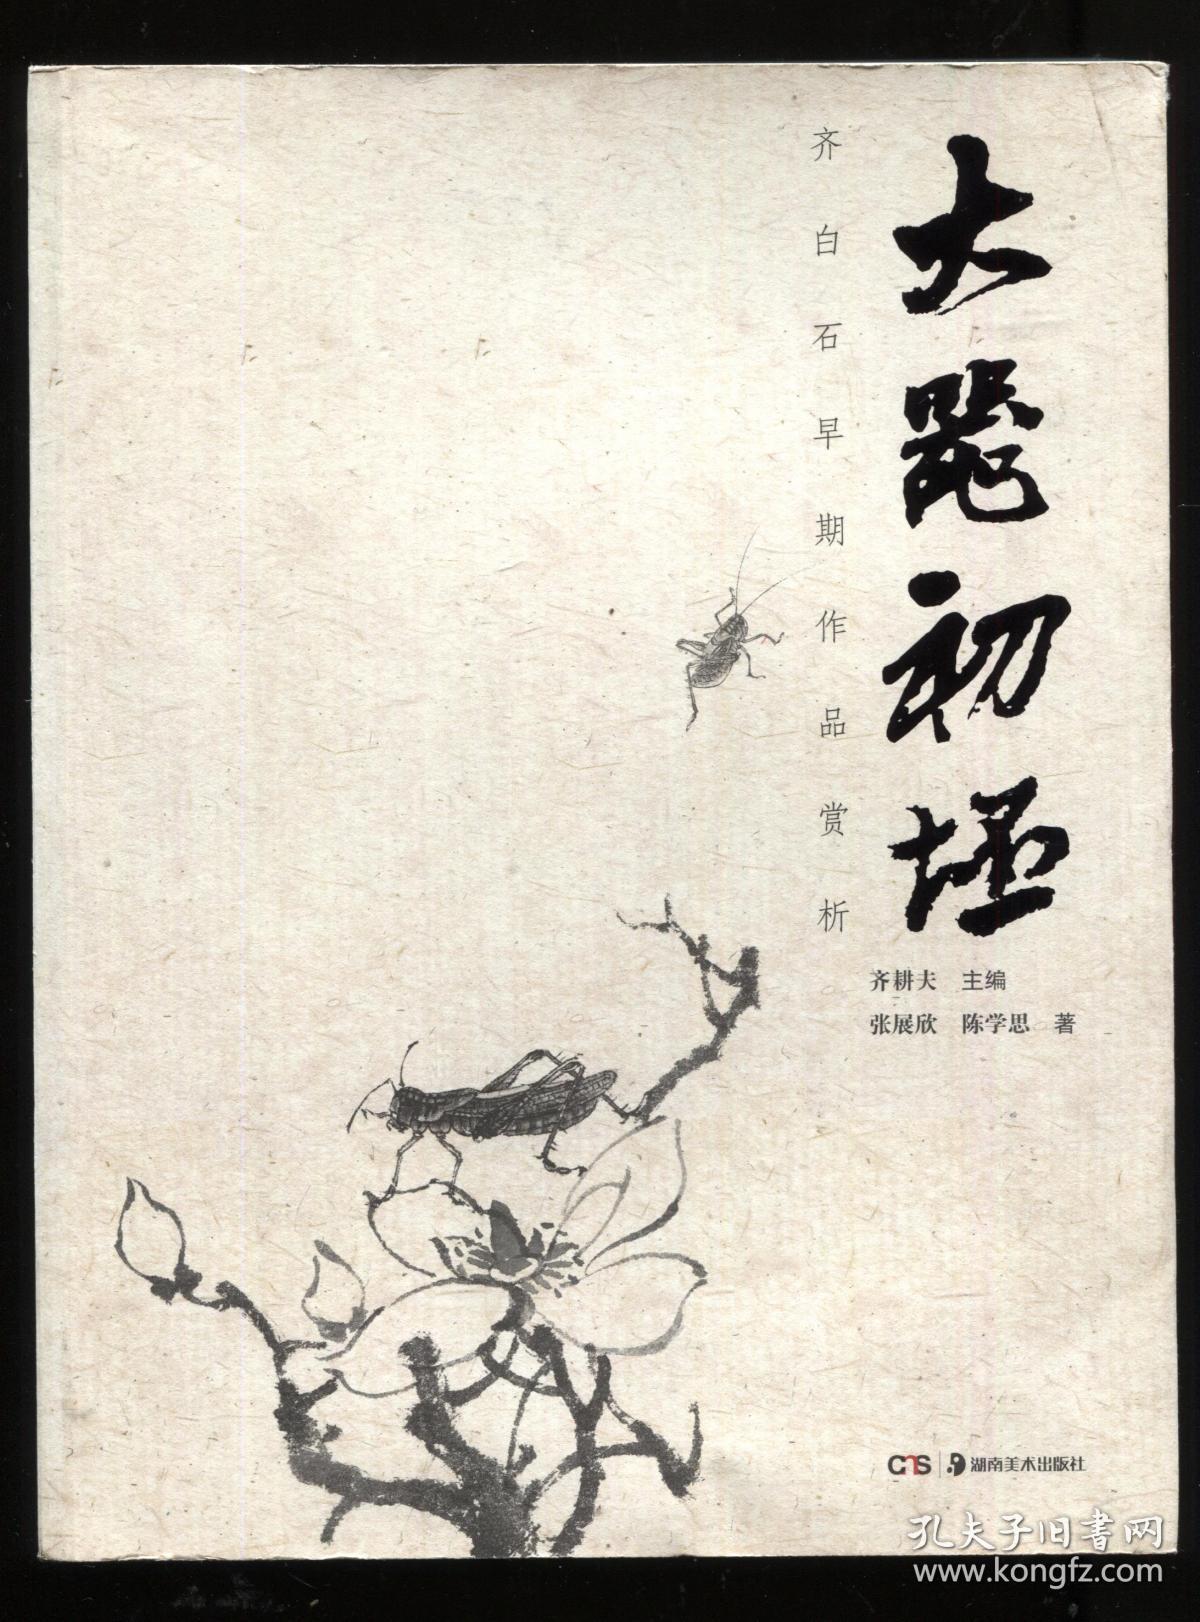 大器初坯
齐白石早期作品赏析
齐耕夫 主编
张展欣 陈学思 著
CNS 湖南美术出版社
孔夫子旧书网
www.kongfz.com